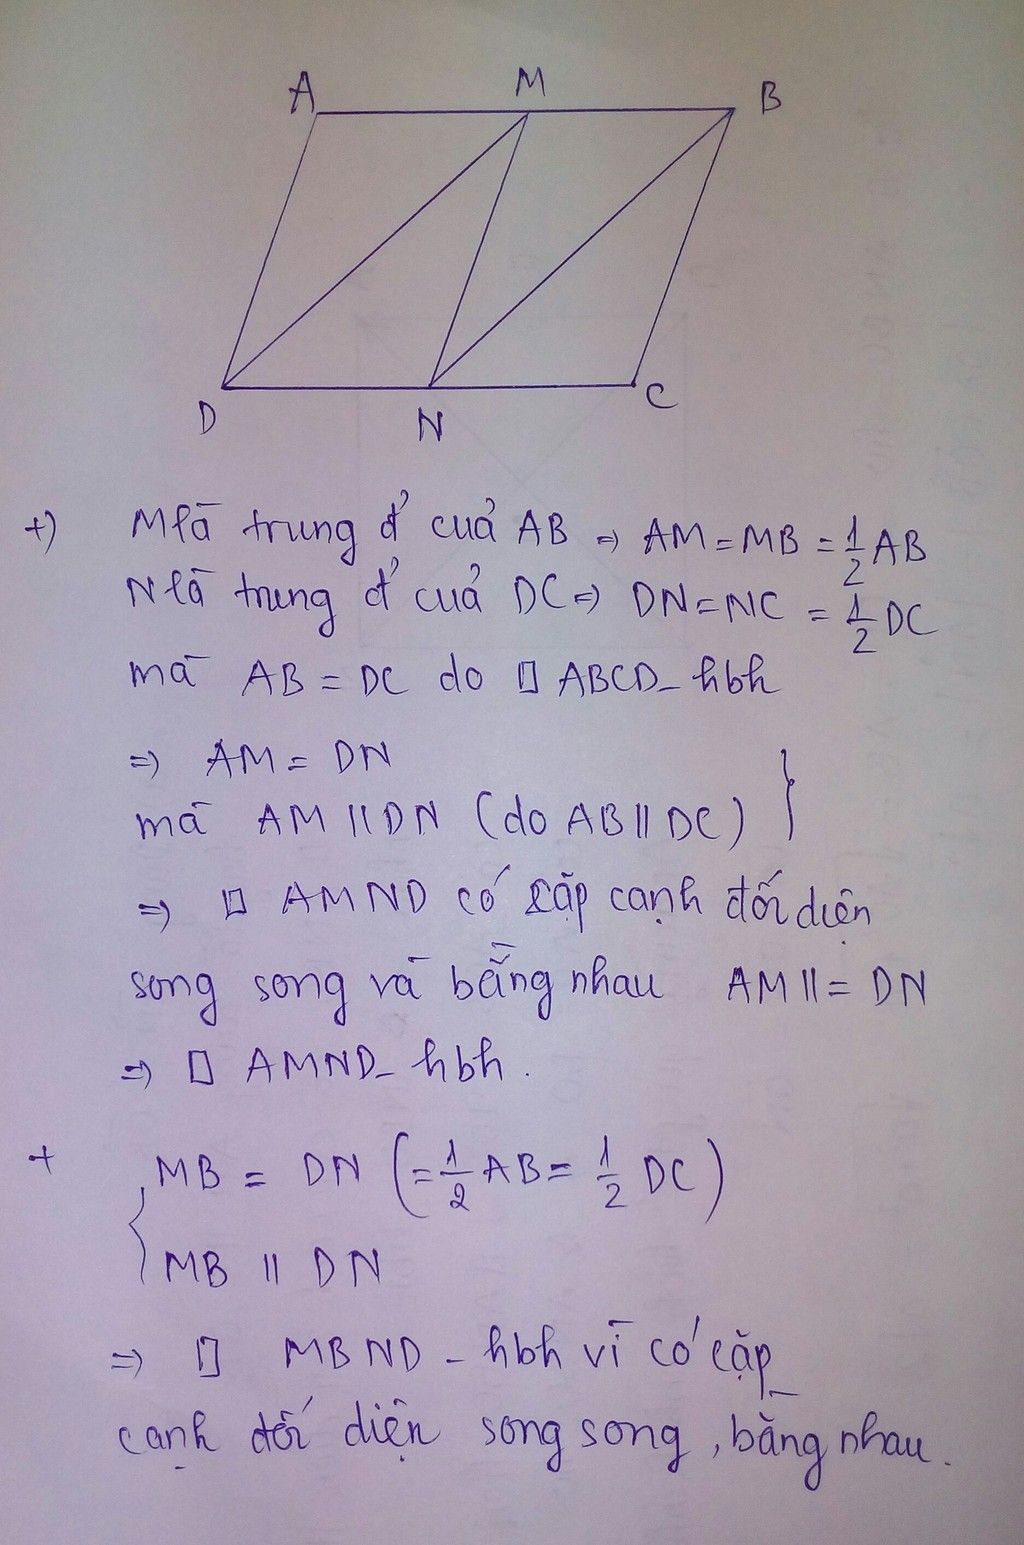 A M B
D N C
+) M là trung đ' của AB => AM = MB = 1/2 AB
N là trung đ' của DC => DN = NC = 1/2 DC
mà AB = DC do ▯ ABCD - hbh
=> AM = DN
mà AM || DN (do AB || DC) }
=> ▯ AMND có cặp cạnh đối diện
song song và bằng nhau AM ||= DN
=> ▯ AMND - hbh.
+ { MB = DN (= 1/2 AB = 1/2 DC)
MB || DN
=> ▯ MBND - hbh vì có cặp
cạnh đối diện song song, bằng nhau.